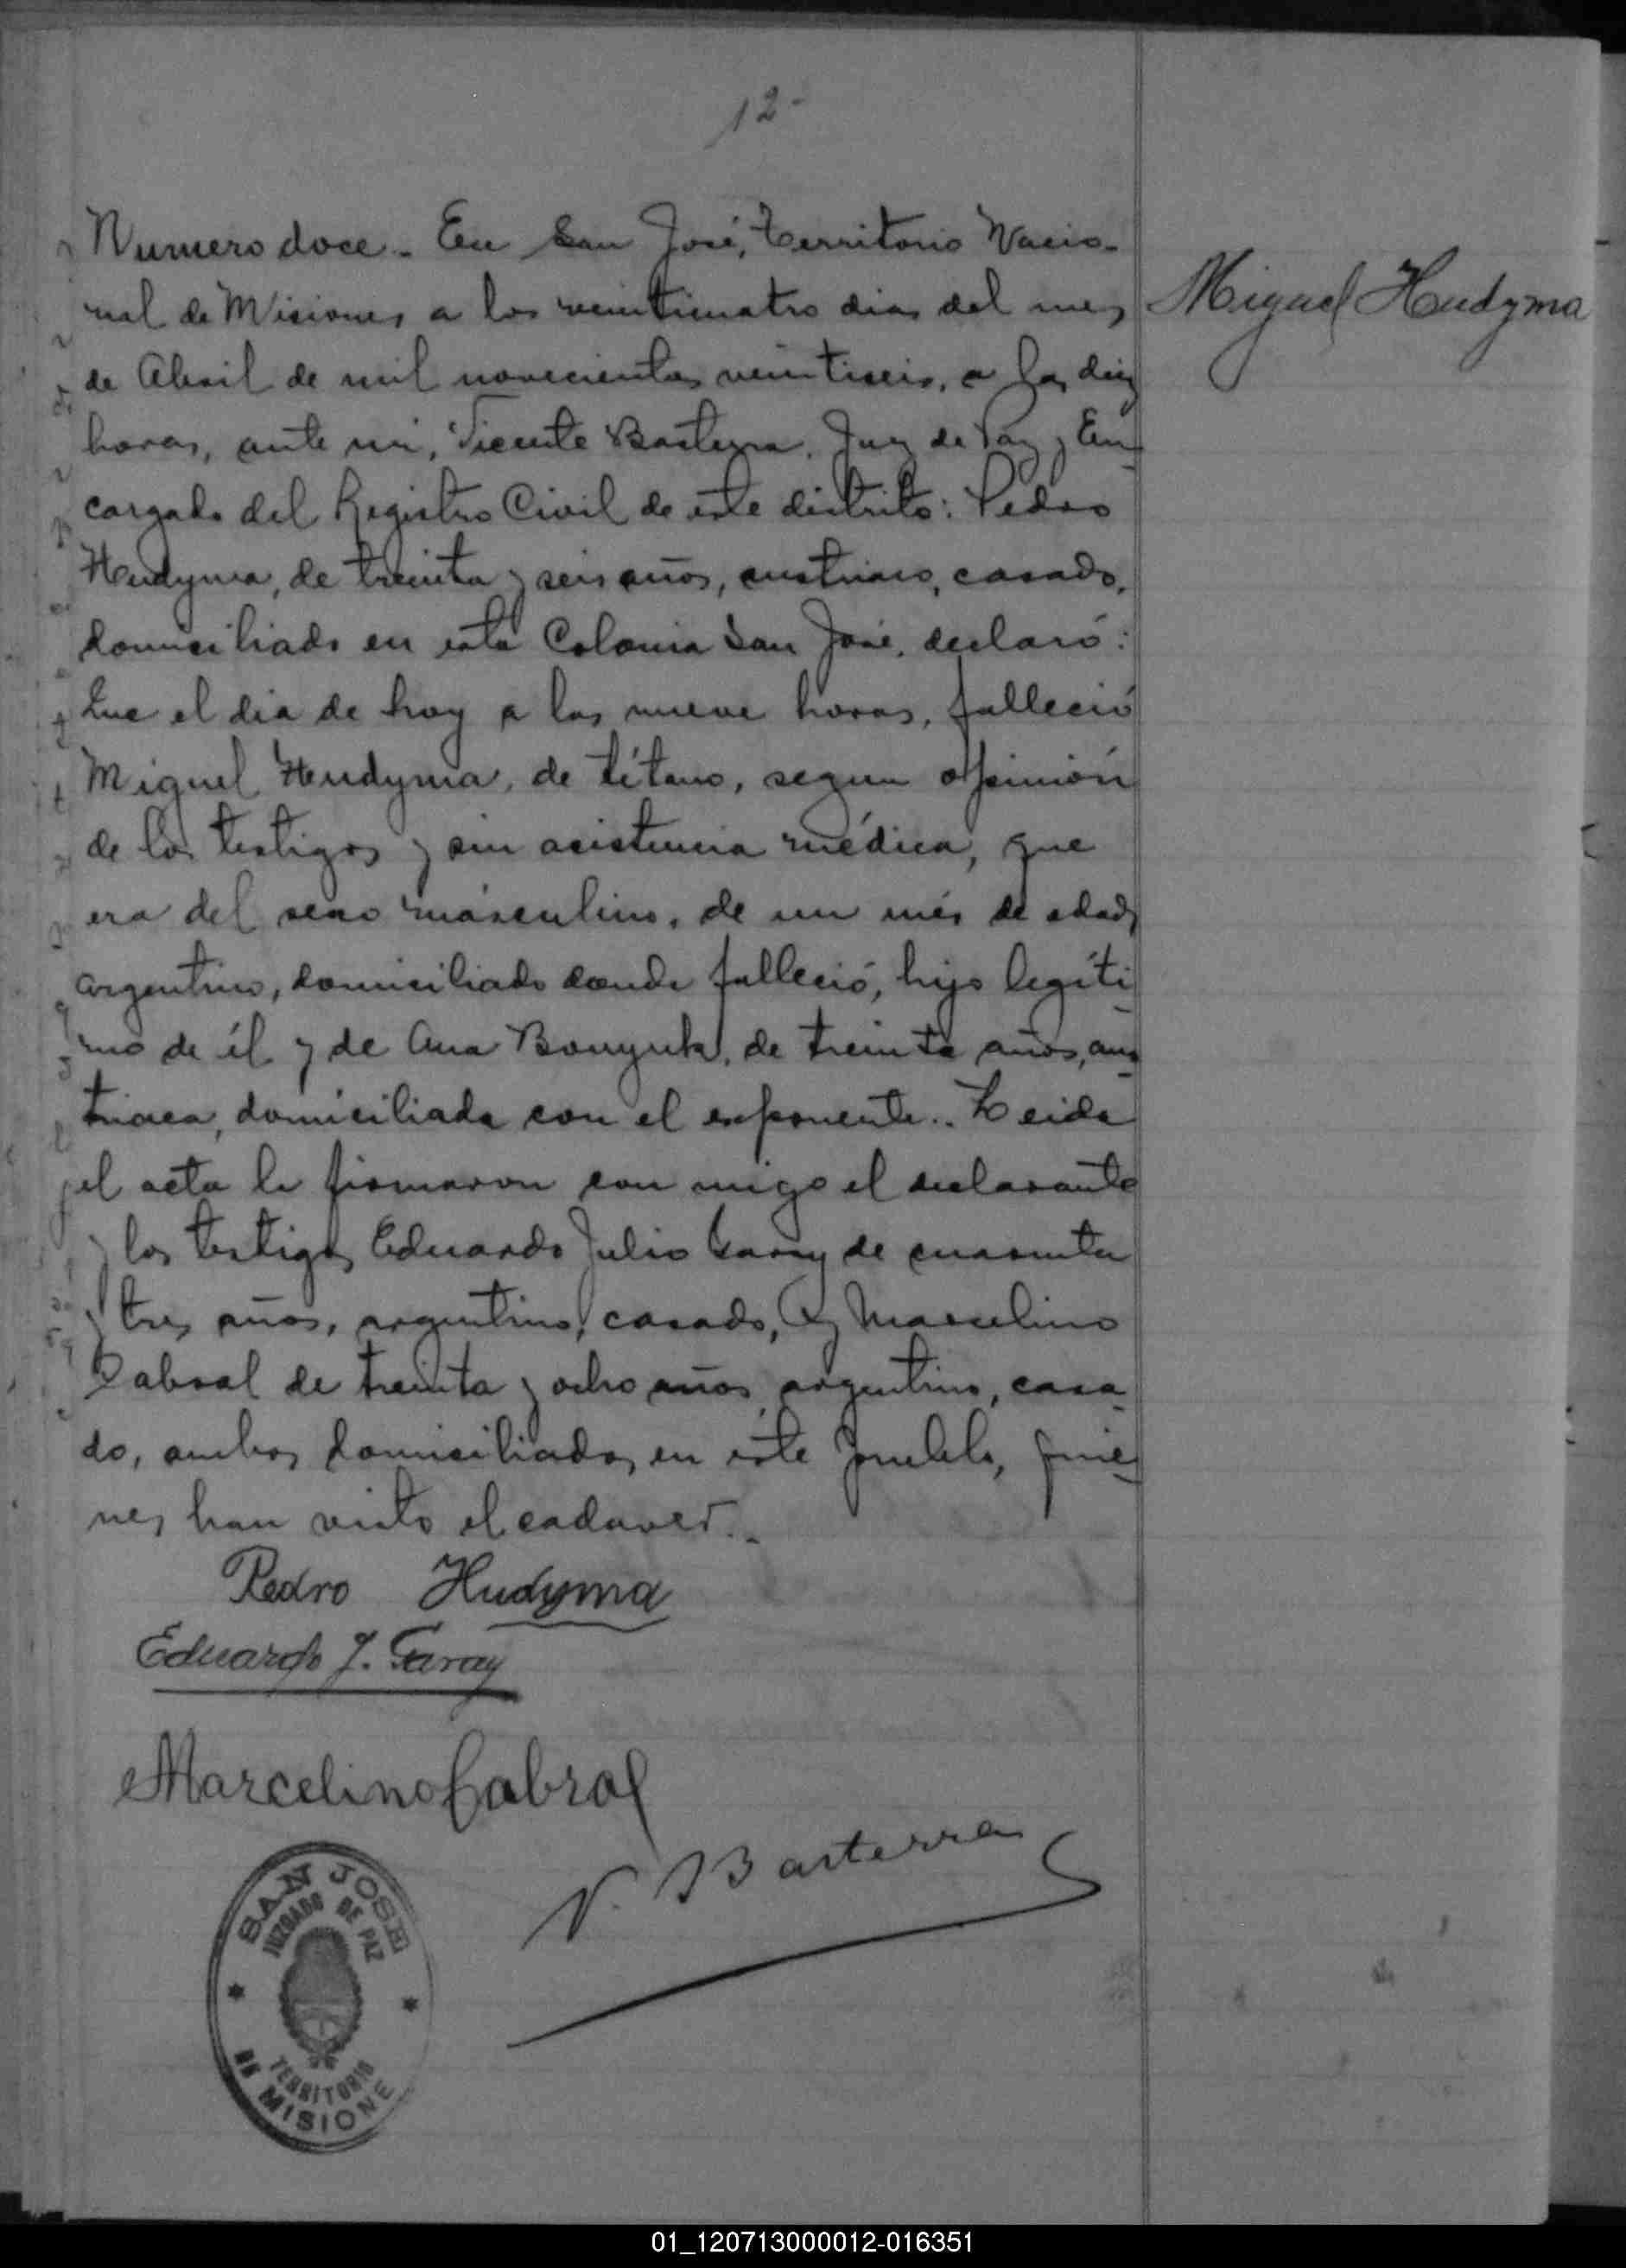 12-
Numero doce. En San José, Territorio Nacio-
nal de Misiones a los veinticuatro dias del mes
Miguel Hudyma
de Abril de mil novecientos veintiseis, a las diez
horas, ante mi, Vicente Basterra, Juez de Paz y En-
cargado del Registro Civil de este distrito: Pedro
Hudyma, de treinta y seis años, austriaco, casado,
domiciliado en esta Colonia San José, declaró:
Que el dia de hoy a las nueve horas, falleció
Miguel Hudyma, de tétano, segun opinión
de los testigos y sin asistencia médica, que
era del sexo másculino, de un més de edad,
argentino, domiciliado donde falleció, hijo legíti-
mo de él y de Ana, de treinta años, aus-
triaca, domiciliada con el exponente.. Leida
el acta la firmaron con migo el declarante
y los testigos Eduardo Julio Garay de cuarenta
y tres años, argentino, casado, y Marcelino
Cabral de treinta y ocho años, argentino, casa-
do, ambos domiciliados en éste pueblo, quie-
nes han visto el cadaver..
Pedro Hudyma
Eduardo J. Garay
Marcelino Cabral
V. Basterra
SAN JOSE
JUZGADO DE PAZ
TERRITORIO
DE MISIONE
01_120713000012-016351